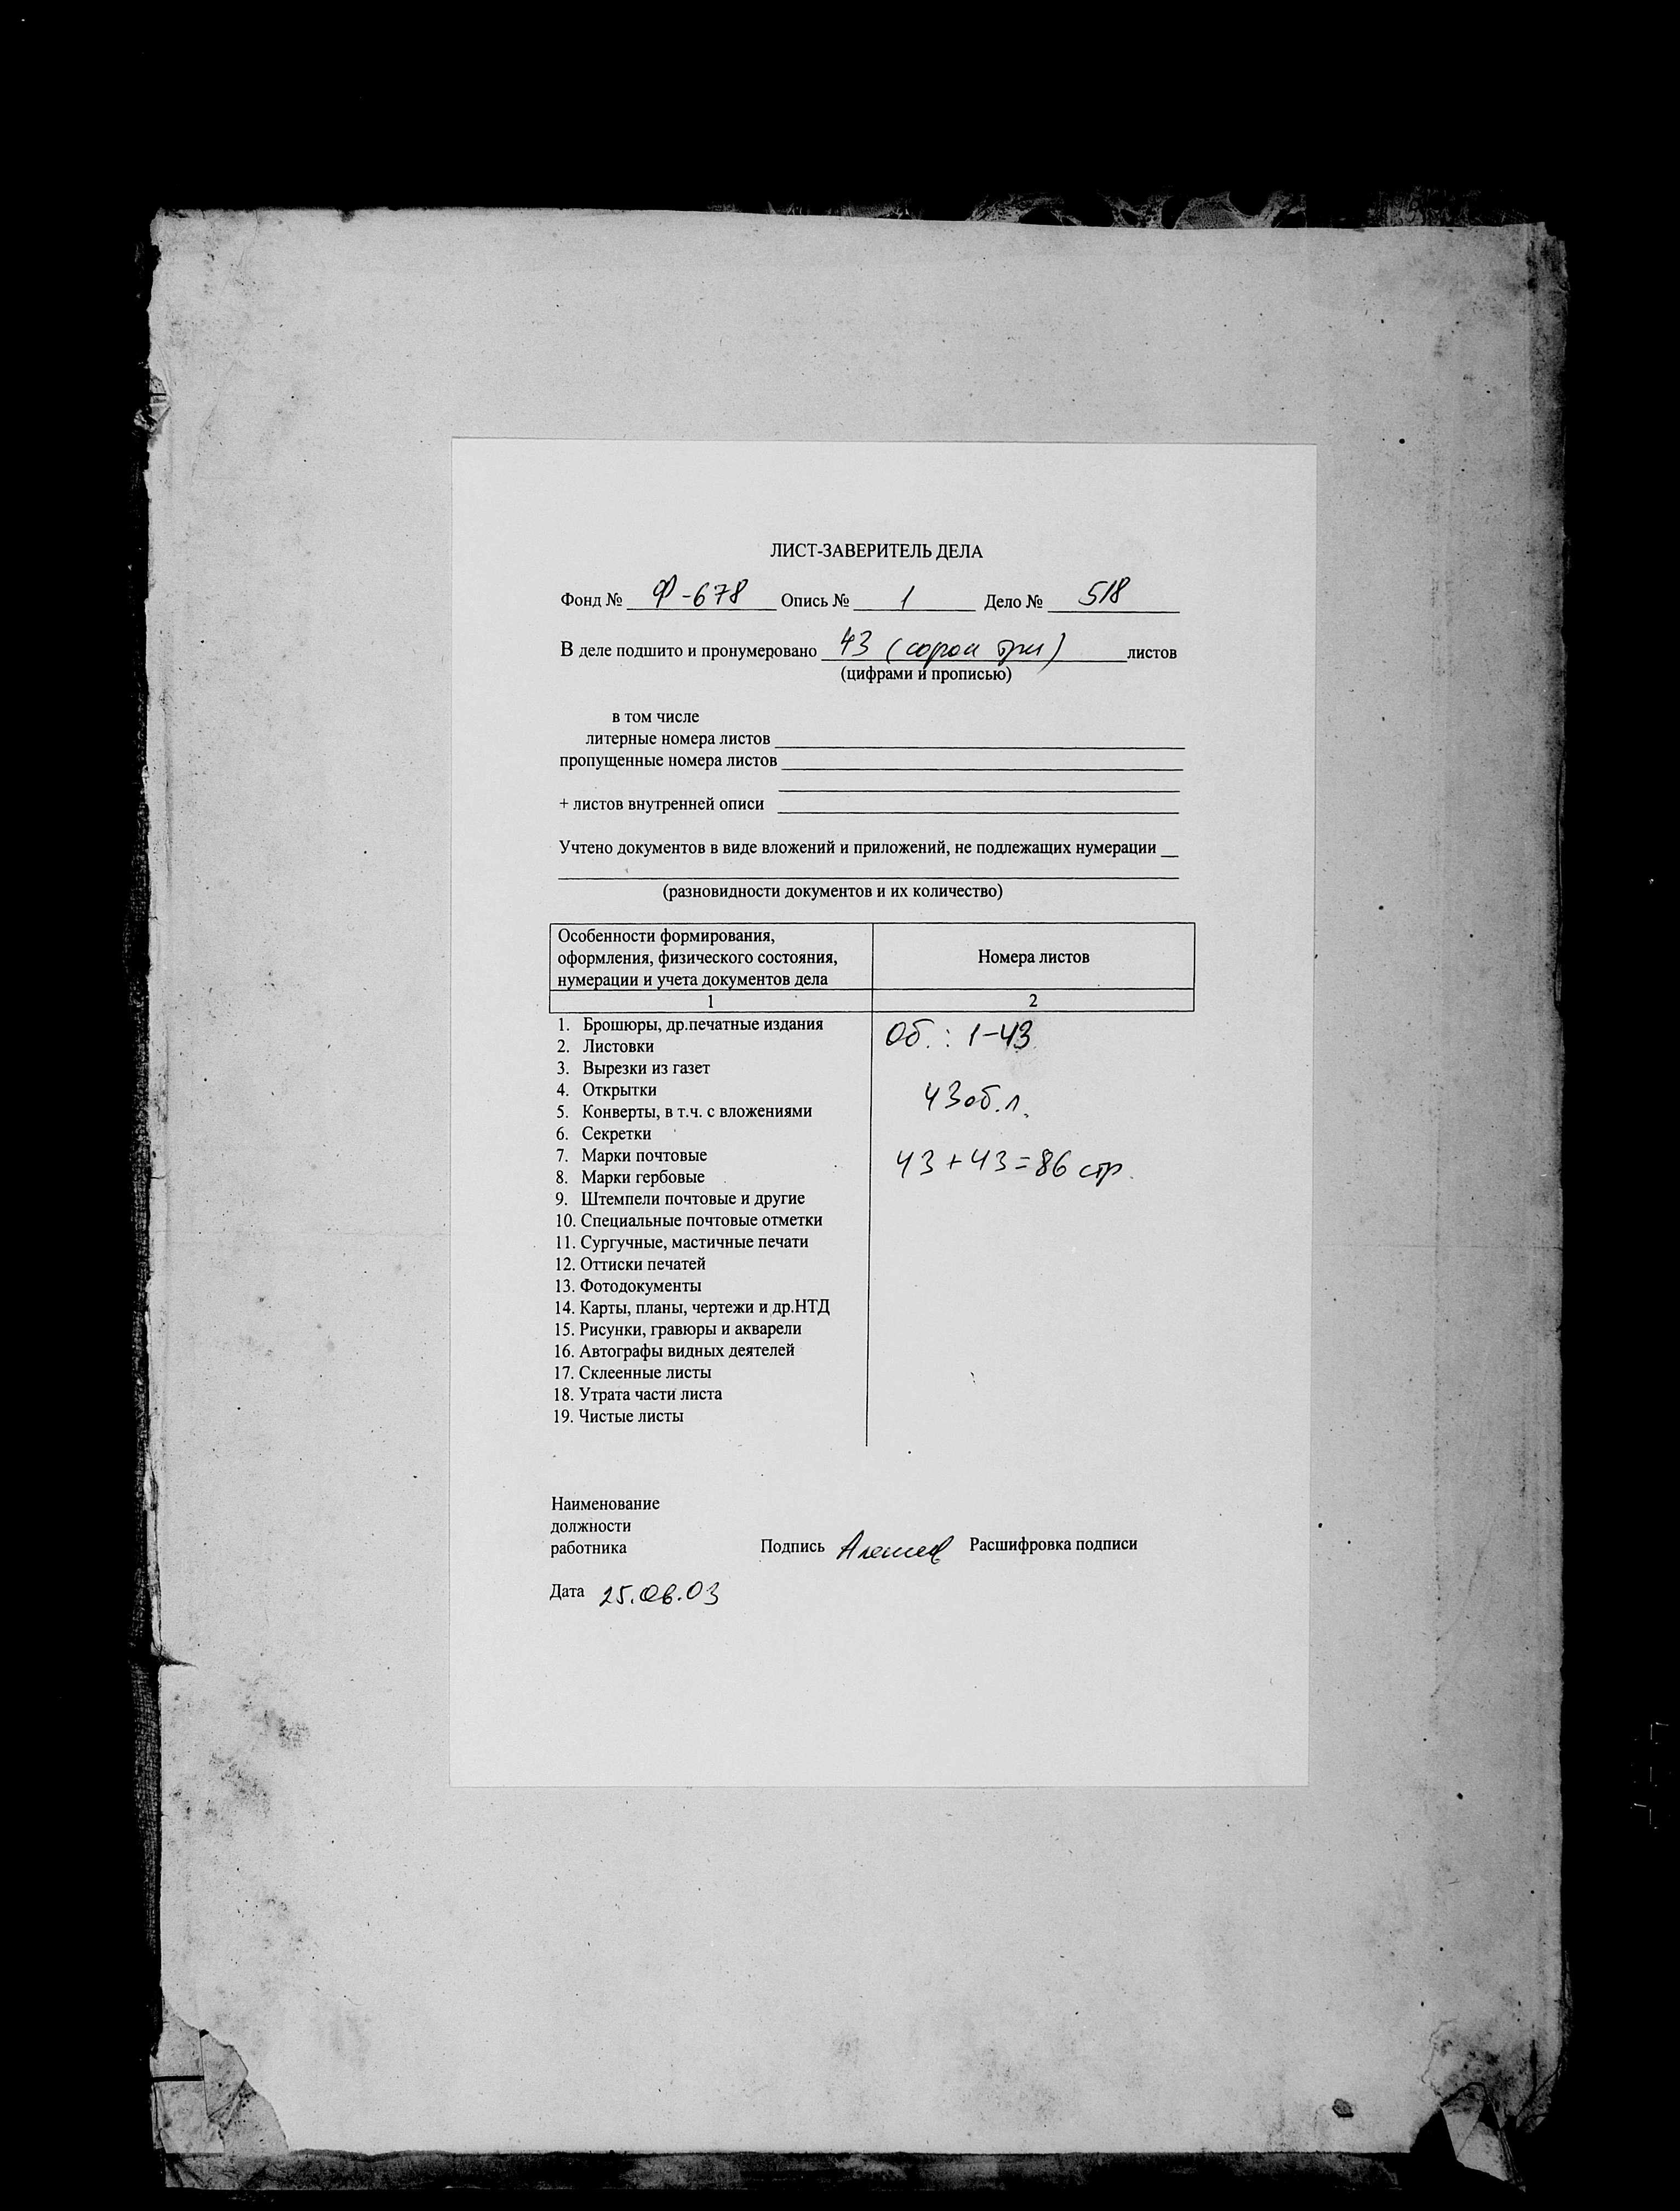 ЛИСТ-ЗАВЕРИТЕЛЬ ДЕЛА
Фонд № Ф-678 Опись № 1 Дело № 518
В деле подшито и пронумеровано 43 (сорок три) листов
(цифрами и прописью)
в том числе
литерные номера листов
пропущенные номера листов
+ листов внутренней описи
Учтено документов в виде вложений и приложений, не подлежащих нумерации
(разновидности документов и их количество)
Особенности формирования,
оформления, физического состояния,
нумерации и учета документов дела
Номера листов
1 2
1. Брошюры, др.печатные издания
2. Листовки
3. Вырезки из газет
4. Открытки
5. Конверты, в т.ч. с вложениями
6. Секретки
7. Марки почтовые
8. Марки гербовые
9. Штемпели почтовые и другие
10. Специальные почтовые отметки
11. Сургучные, мастичные печати
12. Оттиски печатей
13. Фотодокументы
14. Карты, планы, чертежи и др.НТД
15. Рисунки, гравюры и акварели
16. Автографы видных деятелей
17. Склеенные листы
18. Утрата части листа
19. Чистые листы
Об. : 1-43
43 об.л.
43+43=86 стр.
Наименование
должности
работника
Подпись Расшифровка подписи
Дата 25.06.03